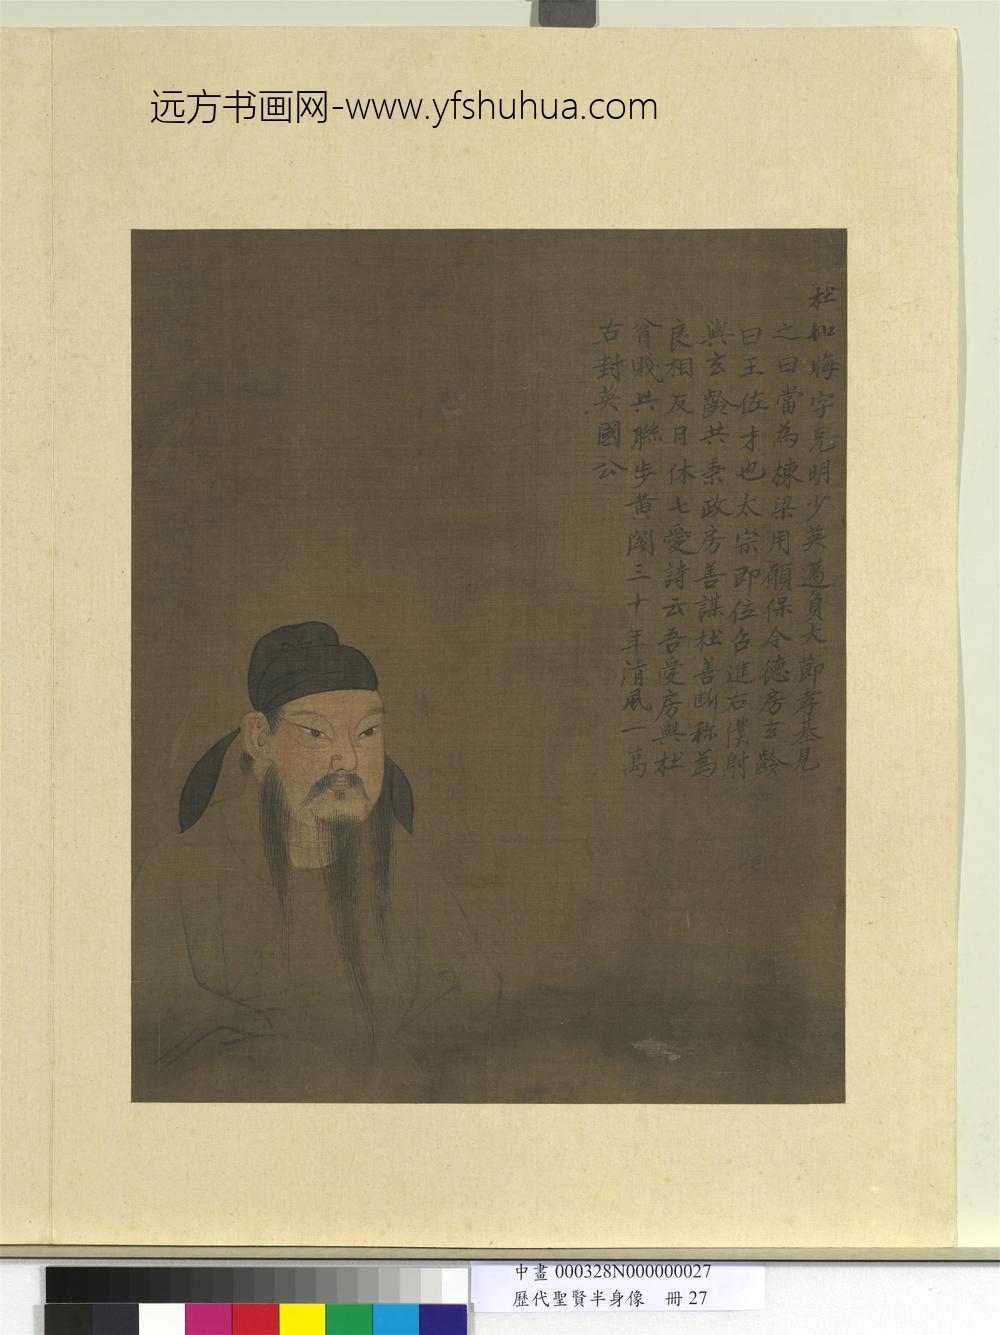 远方书画网-www.yfshuhua.com
杜如晦字克明少英邁負大節孝基見
之曰當為棟梁用願保令德房玄齡
曰王佐才也太宗即位召進右僕射
與玄齡共秉政房善謀杜善斷称為
良相反日休七愛詩云吾愛房與杜
貧賤共聯步黄閣三十年清風一萬
右封英國公
中畫 000328N000000027
歷代聖賢半身像 冊 27